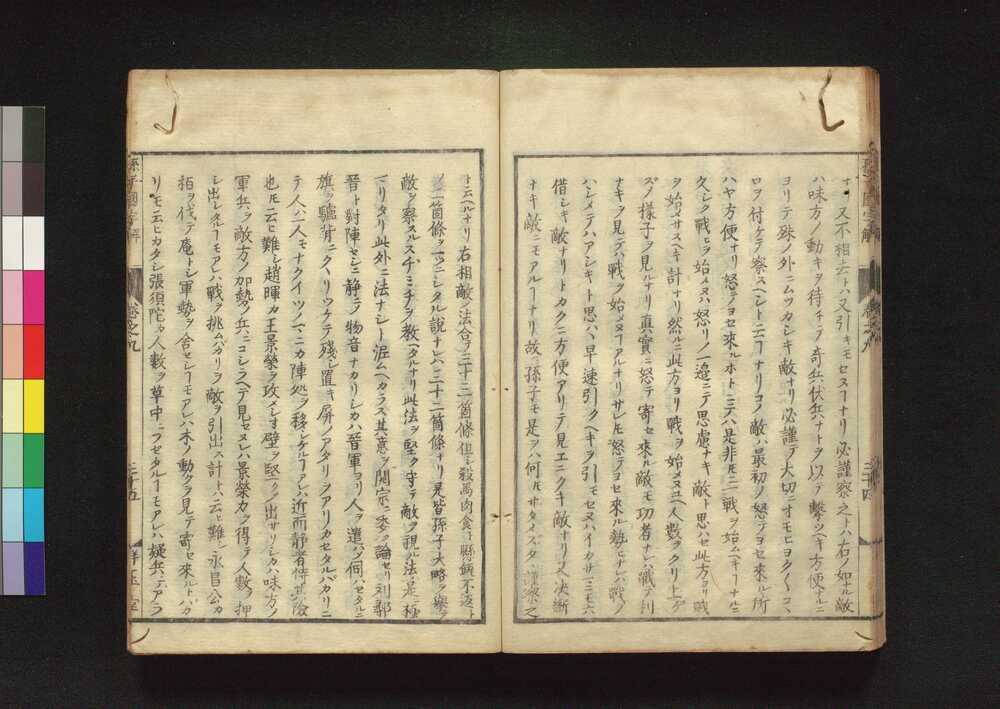 ナリ又不相去トハ又引キモセヌコナリ必謹察之トハ右ノ如ナル敵
ハ味方ノ動キヲ待チテ奇兵伏兵ナトヲ以テ撃ツヘキ方便ナルニ
ヨリテ殊ノ外ニムツカシキ敵ナリ必謹テ大切ニオモヒヨク〱コヽ
ロヲ付ケテ察スヘシト云フナリコノ敵ハ最初ノ怒テヨセ來ル所
ハヤ方便ナリ怒テヨセ來ルホトニテハ是非ニ一戰ヲ始ムヘキコナルニ
久シク戰ヒヲ始メヌハ怒リノ一邉ニテ思慮ナキ敵ト思ハセ此方ヨリ戰
ヲ始メサスヘキ計ナリ然ルニ此方ヨリ戰ヲ始メヌユヘ人數ヲクリ上ケ
ズノ樣子ヲ見ルナリ真實ニ怒テ寄セ來ル敵モ功者ナレハ戰テ利
ナキヲ見テハ戰ヲ始メヌコアルナリサレ𪜈怒テヨセ來ル勢ヒナレハ戰ノ
ハシメテハアシキト思ハヽ早速引クヘキヲ引モセヌハイカサマニモ六
借シキ敵ナリトカクニ方便アリテ見エニクキ敵ナリ又決斷
ナキ敵ニモアルコナリ故ニ孫子モ是ヲハ何𪜈サタメズタヽ謹察之
ト云ヘルナリ右相敵ノ法合テ三十三箇條但シ殺馬肉食ト縣缻不返ト
ヲ一箇條ノコニシタル說ナレハ三十二箇條ナリ是皆孫子大略ヲ擧テ
敵ヲ察スルスチミチヲ敎ヘタルナリ此法ヲ堅ク守テ敵ヲ視ル法是ニ極
マリタリ此外ニ法ナシト泥ムヘカラス其意ヲ閑宗ニ委ク論セリ劉鄩
晉ト對陣セシニ靜ニテ物音ナカリシカハ晉軍ヨリ人ヲ遣ハシ伺ハセタルニ
旗ヲ驢背ニクヽリツケテ殘シ置キ屏ノアタリヲアリカセタルバカリニ
テ人ハ一人モナクイツノマニカ陣処ヲ移シケルコアレハ近而靜者恃其險
也𪜈云ヒ難シ趙暉カ王景榮ヲ攻メシ寸壁ヲ堅クシ出サリシカハ味方ノ
軍兵ヲ敵方ノ加勢ノ兵ニコシラヘテ見セヌレハ景榮カヲ得テ人數ヲ押
シ出シタルコモアレハ戰ヲ挑ムハカリヲ敵ヲ引出ス計トハ云ヒ難シ永昌公カ
栢ヲ伐テ庵トシ軍勢ヲ舍セシコモアレハ木ノ動クヲ見テ寄セ來ルトハカ
リモ云ヒカタシ張須陀カ人數ヲ草中ニフセタルコモアレハ疑兵トテアラ
孫子國字解
卷之九
三十四
孫子國字解
卷之九
三十五